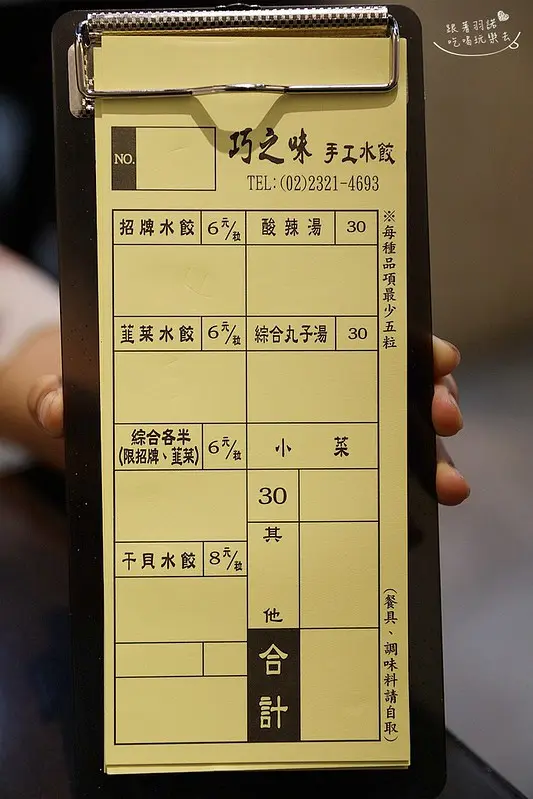 跟著羽諾
吃喝玩樂去
NO.
巧之味 手工水餃
TEL:(02)2321-4693
招牌水餃 6元/粒 酸辣湯 30
韮菜水餃 6元/粒 綜合丸子湯 30
綜合各半
(限招牌、韮菜) 6元/粒 小菜
30
其他
干貝水餃 8元/粒
合計
※每種品項最少五粒
(餐具、調味料請自取)